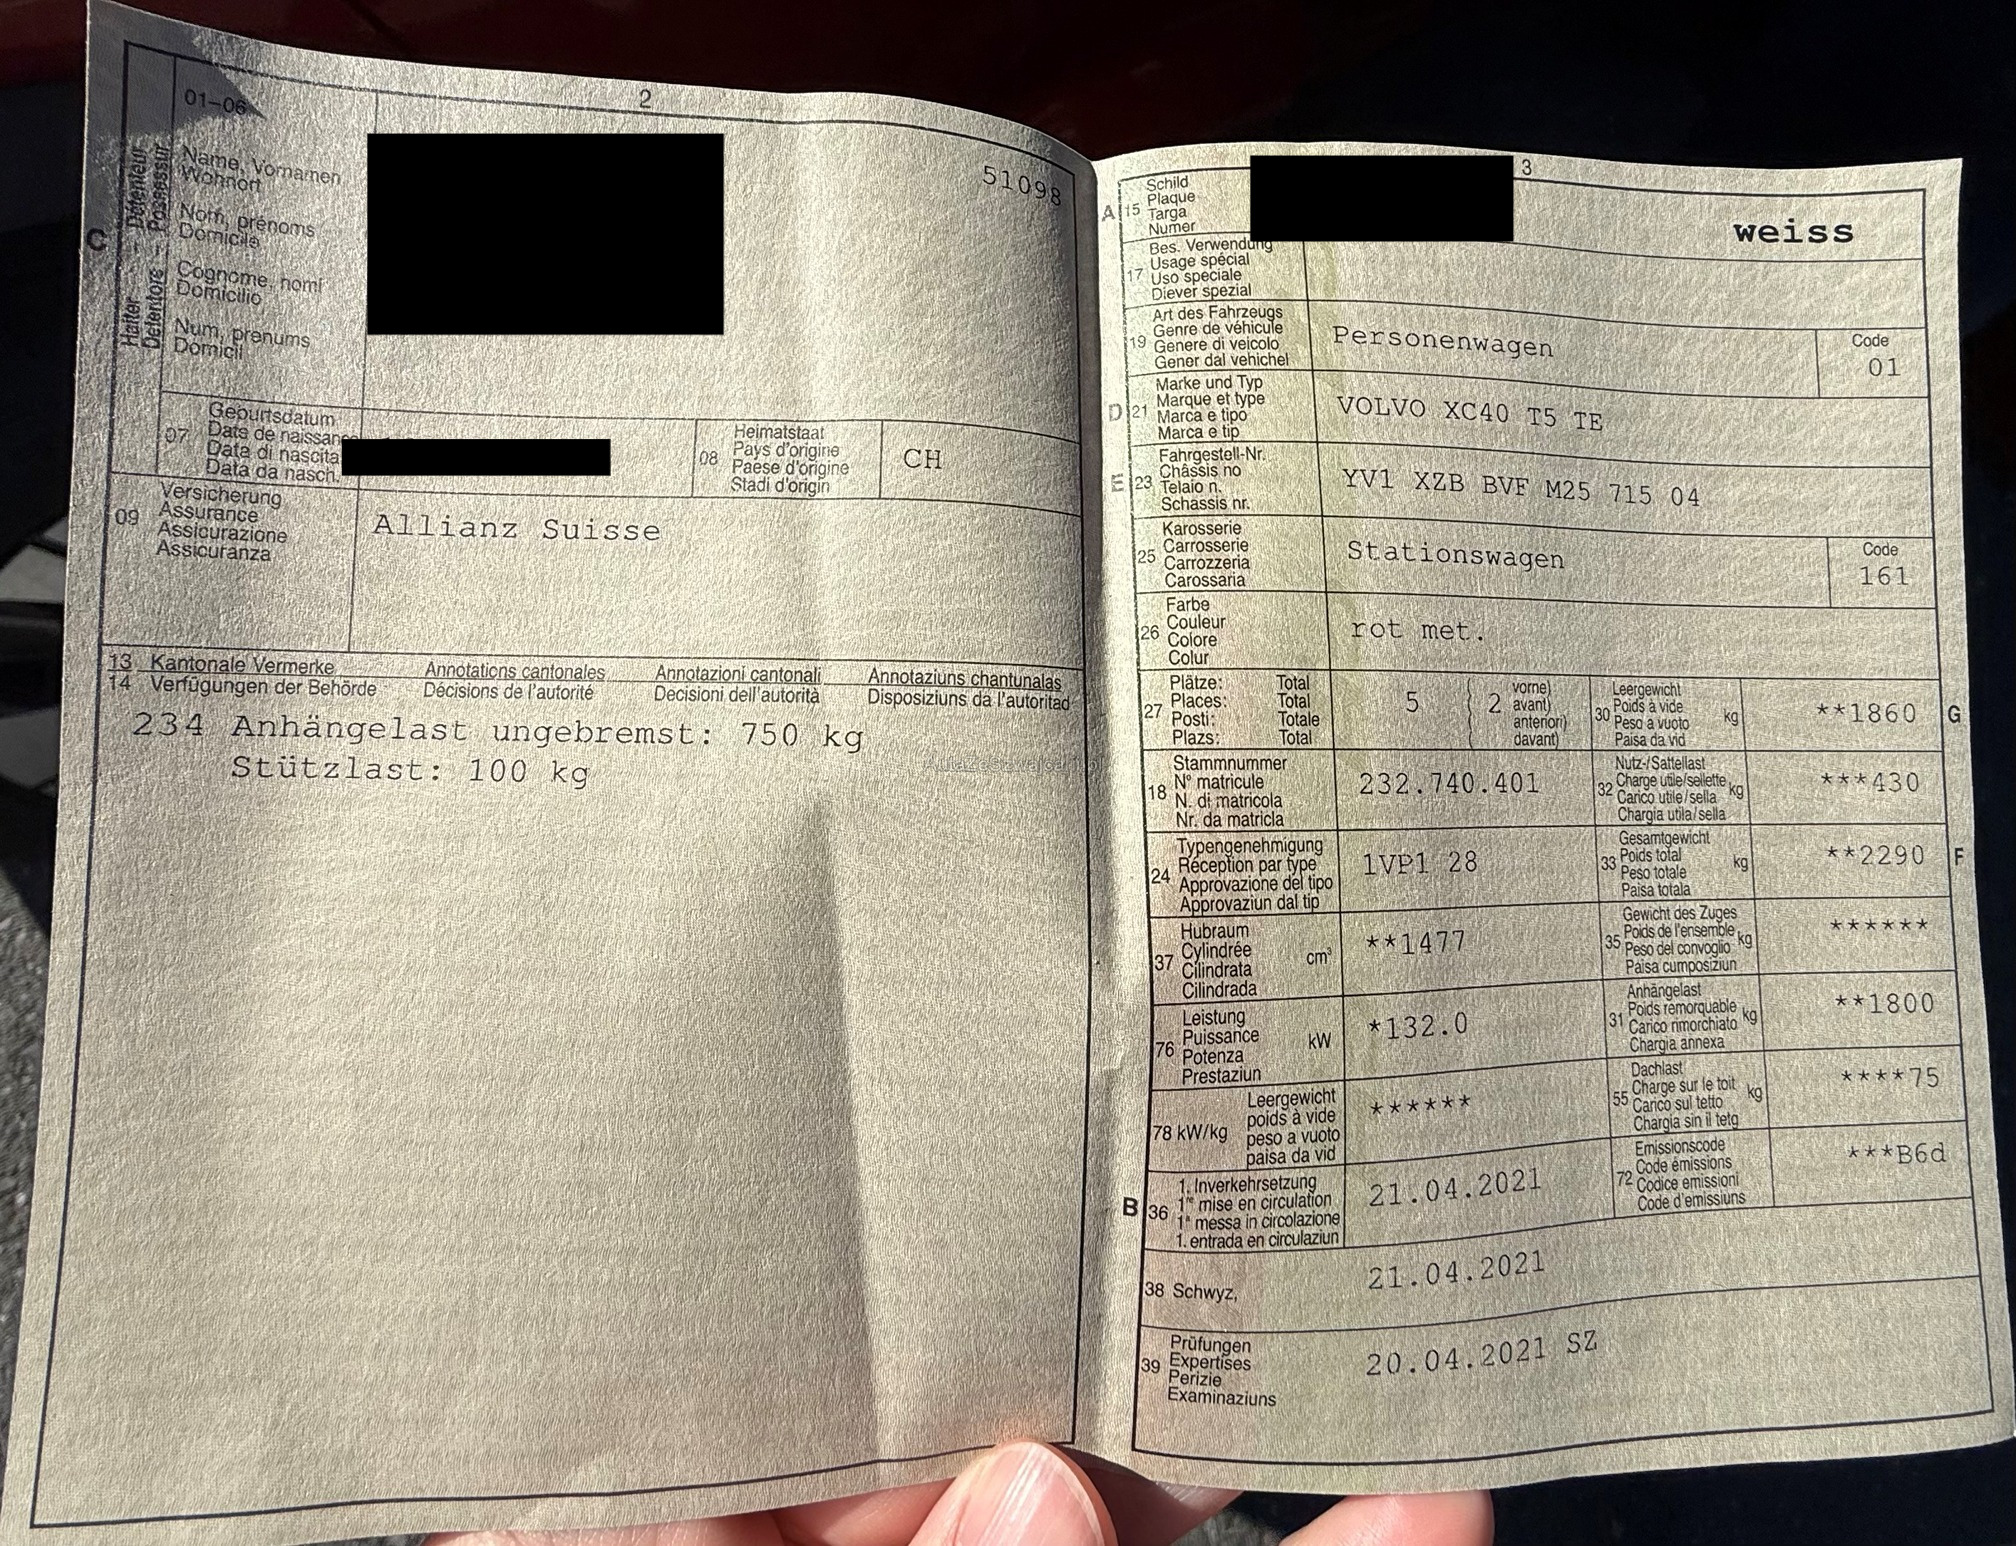 01-06
2
51098
C
Halter - Détenteur
Detentore - Possessur
Name, Vornamen
Wohnort
Nom, prénoms
Domicile
Cognome, nomi
Domicilio
Num, prenums
Domicil
07
Geburtsdatum
Date de naissance
Data di nascita
Data da nasch.
08
Heimatstaat
Pays d'origine
Paese d'origine
Stadi d'origin
CH
09
Versicherung
Assurance
Assicurazione
Assicuranza
Allianz Suisse
13 Kantonale Vermerke Annotations cantonales Annotazioni cantonali Annotaziuns chantunalas
14 Verfügungen der Behörde Décisions de l'autorité Decisioni dell'autorità Disposiziuns da l'autoritad
234 Anhängelast ungebremst: 750 kg
Stützlast: 100 kg
3
A 15
Schild
Plaque
Targa
Numer
weiss
17
Bes. Verwendung
Usage spécial
Uso speciale
Diever spezial
19
Art des Fahrzeugs
Genre de véhicule
Genere di veicolo
Gener dal vehichel
Personenwagen
Code
01
D 21
Marke und Typ
Marque et type
Marca e tipo
Marca e tip
VOLVO XC40 T5 TE
E 23
Fahrgestell-Nr.
Châssis no
Telaio n.
Schassis nr.
YV1 XZB BVF M25 715 04
25
Karosserie
Carrosserie
Carrozzeria
Carossaria
Stationswagen
Code
161
26
Farbe
Couleur
Colore
Colur
rot met.
27
Plätze: Total
Places: Total
Posti: Totale
Plazs: Total
5
2
vorne)
avant)
anteriori)
davant)
30
Leergewicht
Poids à vide
Peso a vuoto
Paisa da vid
kg
**1860
G
18
Stammnummer
N° matricule
N. di matricola
Nr. da matricla
232.740.401
32
Nutz-/Sattellast
Charge utile/sellette
Carico utile/sella
Chargia utila/sella
kg
***430
24
Typengenehmigung
Réception par type
Approvazione del tipo
Approvaziun dal tip
1VP1 28
33
Gesamtgewicht
Poids total
Peso totale
Paisa totala
kg
**2290
F
37
Hubraum
Cylindrée
Cilindrata
Cilindrada
cm³
**1477
35
Gewicht des Zuges
Poids de l'ensemble
Peso del convoglio
Paisa cumposiziun
kg
******
76
Leistung
Puissance
Potenza
Prestaziun
kW
*132.0
31
Anhängelast
Poids remorquable
Carico rimorchiato
Chargia annexa
kg
**1800
78 kW/kg
Leergewicht
poids à vide
peso a vuoto
paisa da vid
******
55
Dachlast
Charge sur le toit
Carico sul tetto
Chargia sin il tetg
kg
****75
B 36
1. Inverkehrsetzung
1re mise en circulation
1a messa in circolazione
1. entrada en circulaziun
21.04.2021
72
Emissionscode
Code émissions
Codice emissioni
Code d'emissiuns
***B6d
38 Schwyz,
21.04.2021
39
Prüfungen
Expertises
Perizie
Examinaziuns
20.04.2021 SZ